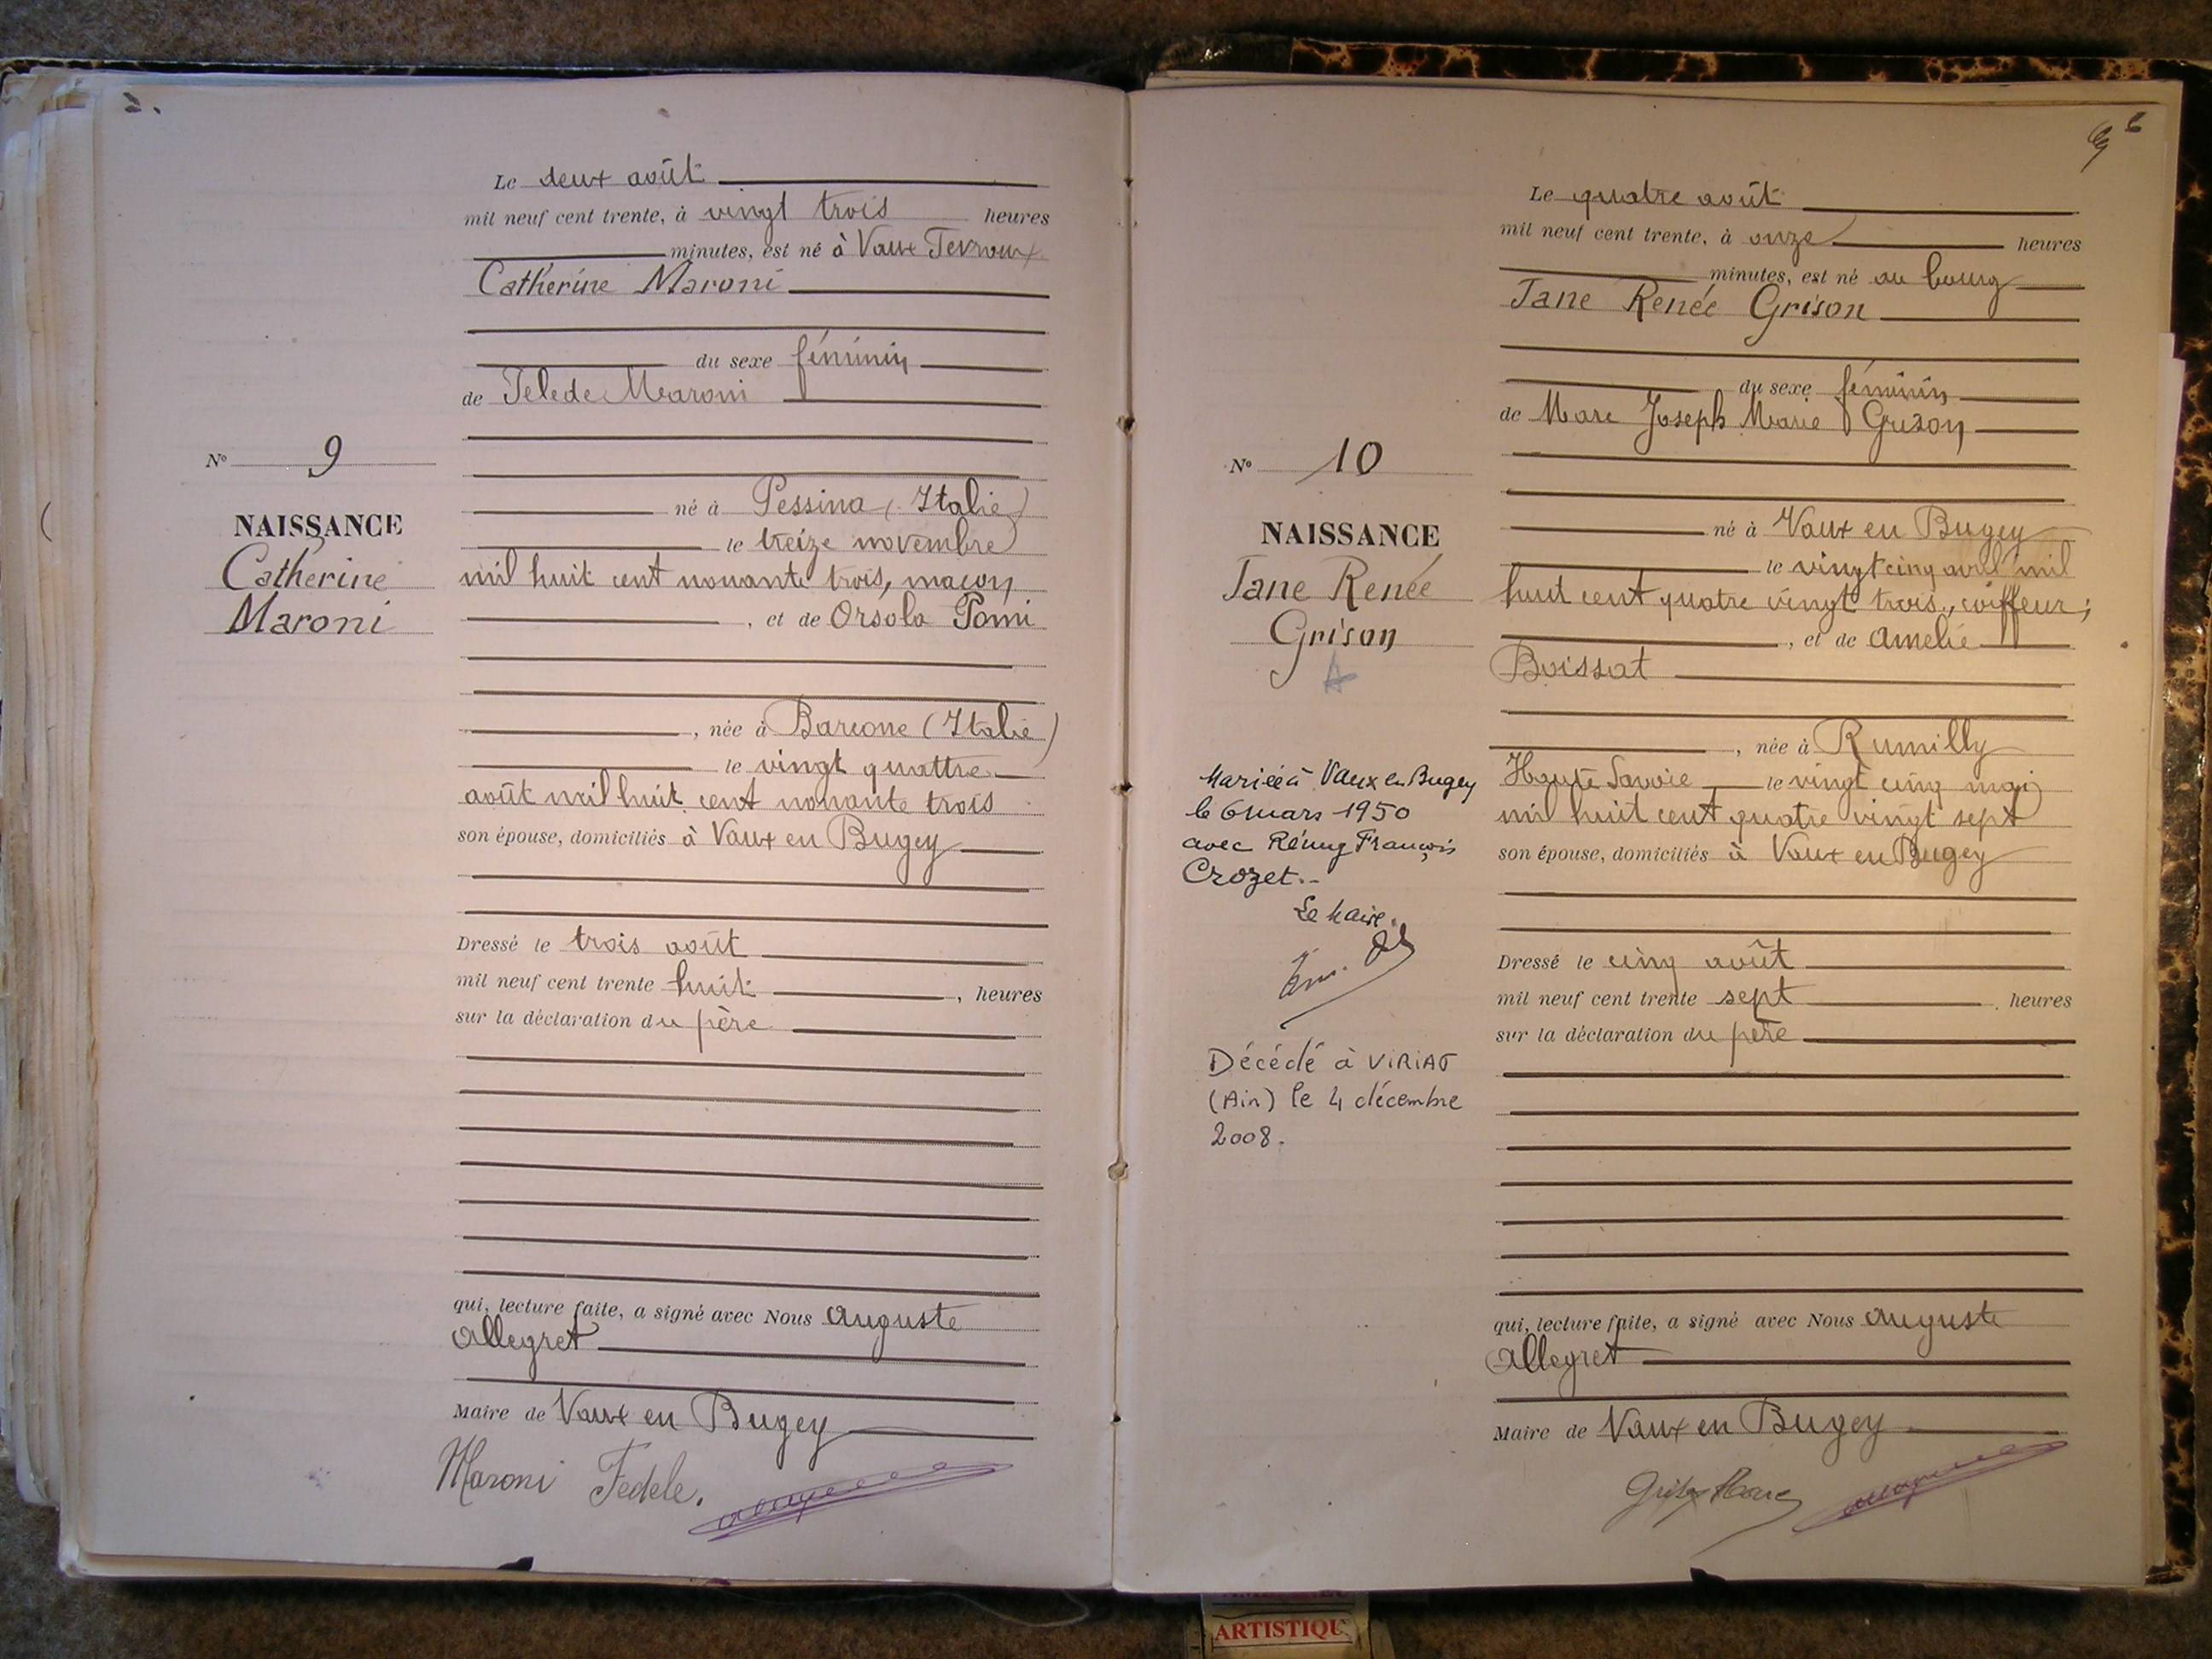 2.
Le deux août
mil neuf cent trente, à vingt trois heures
minutes, est né à Vaux Fevroux
Catherine Maroni
du sexe féminin
de Felede Maroni
né à Pessina (Italie)
le treize novembre
mil huit cent nonante trois, maçon
, et de Orsola Pomi
, née à Barcone (Italie)
le vingt quattre
août mil huit cent nonante trois
son épouse, domiciliés à Vaux en Bugey
Dressé le trois août
mil neuf cent trente huit , heures
sur la déclaration du père
qui, lecture faite, a signé avec Nous Auguste
Allegret
Maire de Vaux en Bugey
Maroni Fedele.
N° 9
NAISSANCE
Catherine
Maroni
Le quatre août
mil neuf cent trente, à onze heures
minutes, est né au bourg
Jane Renée Grison
du sexe féminin
de Marc Joseph Marie Grison
né à Vaux en Bugey
le vingt cinq avril mil
huit cent quatre vingt trois, coiffeur;
, et de Amelie
Boissat
, née à Rumilly
Haute Savoie le vingt cinq mai
mil huit cent quatre vingt sept
son épouse, domiciliés à Vaux en Bugey
Dressé le cinq août
mil neuf cent trente sept heures
sur la déclaration du père
qui, lecture faite, a signé avec Nous Auguste
Allegret
Maire de Vaux en Bugey
Grison Marc
N° 10
NAISSANCE
Jane Renée
Grison
A
Mariée à Vaux en Bugey
le 6 mars 1950
avec Rémy François
Crozet.-
Le Maire.
Décédé à VIRIAT
(Ain) le 4 décembre
2008.
ARTISTIQU